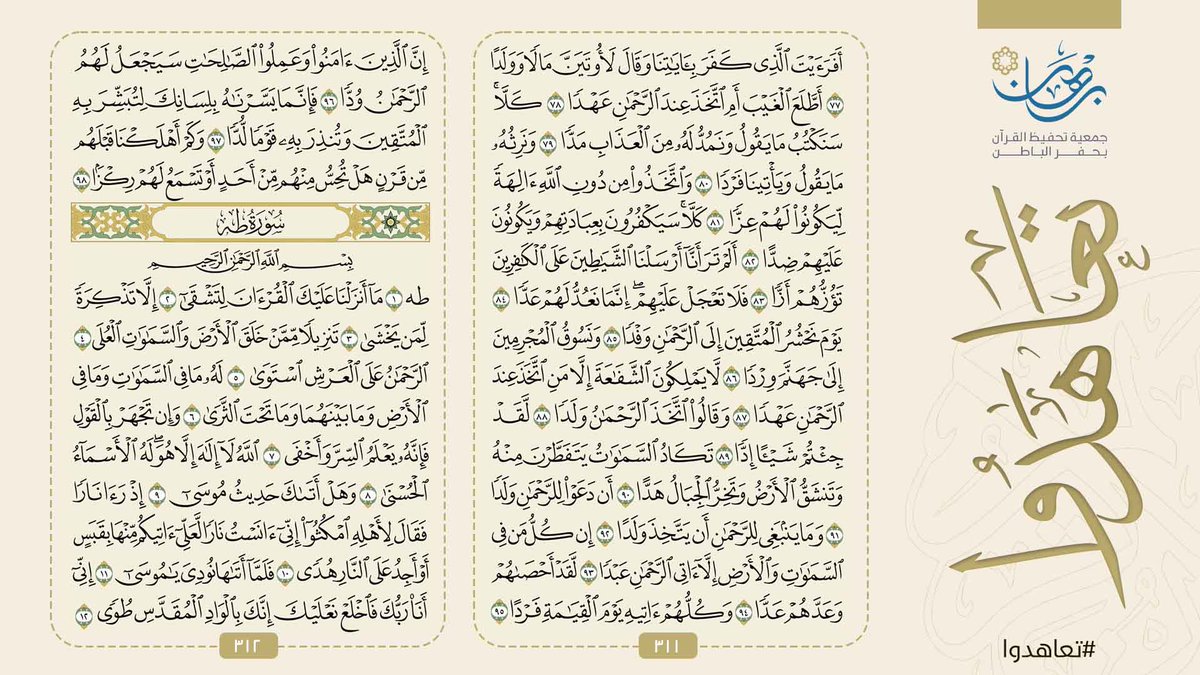 برهان
جمعية تحفيظ القرآن
بحفر الباطن
تعاهدوا
#تعاهدوا
أَفَرَءَيْتَ ٱلَّذِى كَفَرَ بِـَٔايَـٰتِنَا وَقَالَ لَأُوتَيَنَّ مَالًا وَوَلَدًا
٧٧ أَطَّلَعَ ٱلْغَيْبَ أَمِ ٱتَّخَذَ عِندَ ٱلرَّحْمَـٰنِ عَهْدًا ٧٨ كَلَّا ۚ
سَنَكْتُبُ مَا يَقُولُ وَنَمُدُّ لَهُۥ مِنَ ٱلْعَذَابِ مَدًّا ٧٩ وَنَرِثُهُۥ
مَا يَقُولُ وَيَأْتِينَا فَرْدًا ٨٠ وَٱتَّخَذُوا۟ مِن دُونِ ٱللَّهِ ءَالِهَةً
لِّيَكُونُوا۟ لَهُمْ عِزًّا ٨١ كَلَّا ۚ سَيَكْفُرُونَ بِعِبَادَتِهِمْ وَيَكُونُونَ
عَلَيْهِمْ ضِدًّا ٨٢ أَلَمْ تَرَ أَنَّآ أَرْسَلْنَا ٱلشَّيَـٰطِينَ عَلَى ٱلْكَـٰفِرِينَ
تَؤُزُّهُمْ أَزًّا ٨٣ فَلَا تَعْجَلْ عَلَيْهِمْ ۖ إِنَّمَا نَعُدُّ لَهُمْ عَدًّا ٨٤
يَوْمَ نَحْشُرُ ٱلْمُتَّقِينَ إِلَى ٱلرَّحْمَـٰنِ وَفْدًا ٨٥ وَنَسُوقُ ٱلْمُجْرِمِينَ
إِلَىٰ جَهَنَّمَ وِرْدًا ٨٦ لَّا يَمْلِكُونَ ٱلشَّفَـٰعَةَ إِلَّا مَنِ ٱتَّخَذَ عِندَ
ٱلرَّحْمَـٰنِ عَهْدًا ٨٧ وَقَالُوا۟ ٱتَّخَذَ ٱلرَّحْمَـٰنُ وَلَدًا ٨٨ لَّقَدْ
جِئْتُمْ شَيْـًٔا إِدًّا ٨٩ تَكَادُ ٱلسَّمَـٰوَٰتُ يَتَفَطَّرْنَ مِنْهُ
وَتَنشَقُّ ٱلْأَرْضُ وَتَخِرُّ ٱلْجِبَالُ هَدًّا ٩٠ أَن دَعَوْا۟ لِلرَّحْمَـٰنِ وَلَدًا
٩١ وَمَا يَنۢبَغِى لِلرَّحْمَـٰنِ أَن يَتَّخِذَ وَلَدًا ٩٢ إِن كُلُّ مَن فِى
ٱلسَّمَـٰوَٰتِ وَٱلْأَرْضِ إِلَّآ ءَاتِى ٱلرَّحْمَـٰنِ عَبْدًا ٩٣ لَّقَدْ أَحْصَىٰهُمْ
وَعَدَّهُمْ عَدًّا ٩٤ وَكُلُّهُمْ ءَاتِيهِ يَوْمَ ٱلْقِيَـٰمَةِ فَرْدًا ٩٥
٣١١
إِنَّ ٱلَّذِينَ ءَامَنُوا۟ وَعَمِلُوا۟ ٱلصَّـٰلِحَـٰتِ سَيَجْعَلُ لَهُمُ
ٱلرَّحْمَـٰنُ وُدًّا ٩٦ فَإِنَّمَا يَسَّرْنَـٰهُ بِلِسَانِكَ لِتُبَشِّرَ بِهِ
ٱلْمُتَّقِينَ وَتُنذِرَ بِهِۦ قَوْمًا لُّدًّا ٩٧ وَكَمْ أَهْلَكْنَا قَبْلَهُم
مِّن قَرْنٍ هَلْ تُحِسُّ مِنْهُم مِّنْ أَحَدٍ أَوْ تَسْمَعُ لَهُمْ رِكْزًۢا ٩٨
سُورَةُ طه
بِسْمِ ٱللَّهِ ٱلرَّحْمَـٰنِ ٱلرَّحِيمِ
طه ١ مَآ أَنزَلْنَا عَلَيْكَ ٱلْقُرْءَانَ لِتَشْقَىٰٓ ٢ إِلَّا تَذْكِرَةً
لِّمَن يَخْشَىٰ ٣ تَنزِيلًا مِّمَّنْ خَلَقَ ٱلْأَرْضَ وَٱلسَّمَـٰوَٰتِ ٱلْعُلَى ٤
ٱلرَّحْمَـٰنُ عَلَى ٱلْعَرْشِ ٱسْتَوَىٰ ٥ لَهُۥ مَا فِى ٱلسَّمَـٰوَٰتِ وَمَا فِى
ٱلْأَرْضِ وَمَا بَيْنَهُمَا وَمَا تَحْتَ ٱلثَّرَىٰ ٦ وَإِن تَجْهَرْ بِٱلْقَوْلِ
فَإِنَّهُۥ يَعْلَمُ ٱلسِّرَّ وَأَخْفَى ٧ ٱللَّهُ لَآ إِلَـٰهَ إِلَّا هُوَ ۖ لَهُ ٱلْأَسْمَآءُ
ٱلْحُسْنَىٰ ٨ وَهَلْ أَتَىٰكَ حَدِيثُ مُوسَىٰٓ ٩ إِذْ رَءَا نَارًا
فَقَالَ لِأَهْلِهِ ٱمْكُثُوٓا۟ إِنِّىٓ ءَانَسْتُ نَارًا لَّعَلِّىٓ ءَاتِيكُم مِّنْهَا بِقَبَسٍ
أَوْ أَجِدُ عَلَى ٱلنَّارِ هُدًى ١٠ فَلَمَّآ أَتَىٰهَا نُودِىَ يَـٰمُوسَىٰٓ ١١ إِنِّىٓ
أَنَا۠ رَبُّكَ فَٱخْلَعْ نَعْلَيْكَ ۖ إِنَّكَ بِٱلْوَادِ ٱلْمُقَدَّسِ طُوًى ١٢
٣١٢